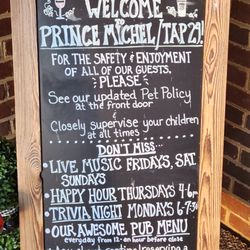 WELCOME
TO
PRINCE MICHEL/TAP 29!
FOR THE SAFETY & ENJOYMENT
OF ALL OF OUR GUESTS.
PLEASE
See our updated Pet Policy
at the front door
&
Closely supervise your children
at all times
DON'T MISS...
• LIVE MUSIC FRIDAYS, SAT
SUNDAYS
• HAPPY HOUR THURSDAYS 4-6
• TRIVIA NIGHT MONDAYS 6-7:30
• OUR AWESOME PUB MENU
everyday from 12-an hour before close